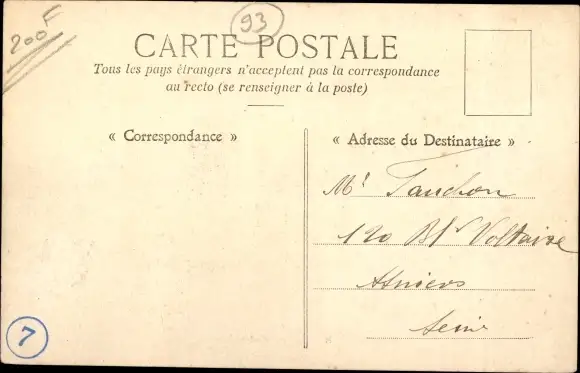 200F
93
CARTE POSTALE
Tous les pays étrangers n'acceptent pas la correspondance
au recto (se renseigner à la poste)
« Correspondance »
« Adresse du Destinataire »
Mr
120 Bd Voltaire
Asnières
Seine
7